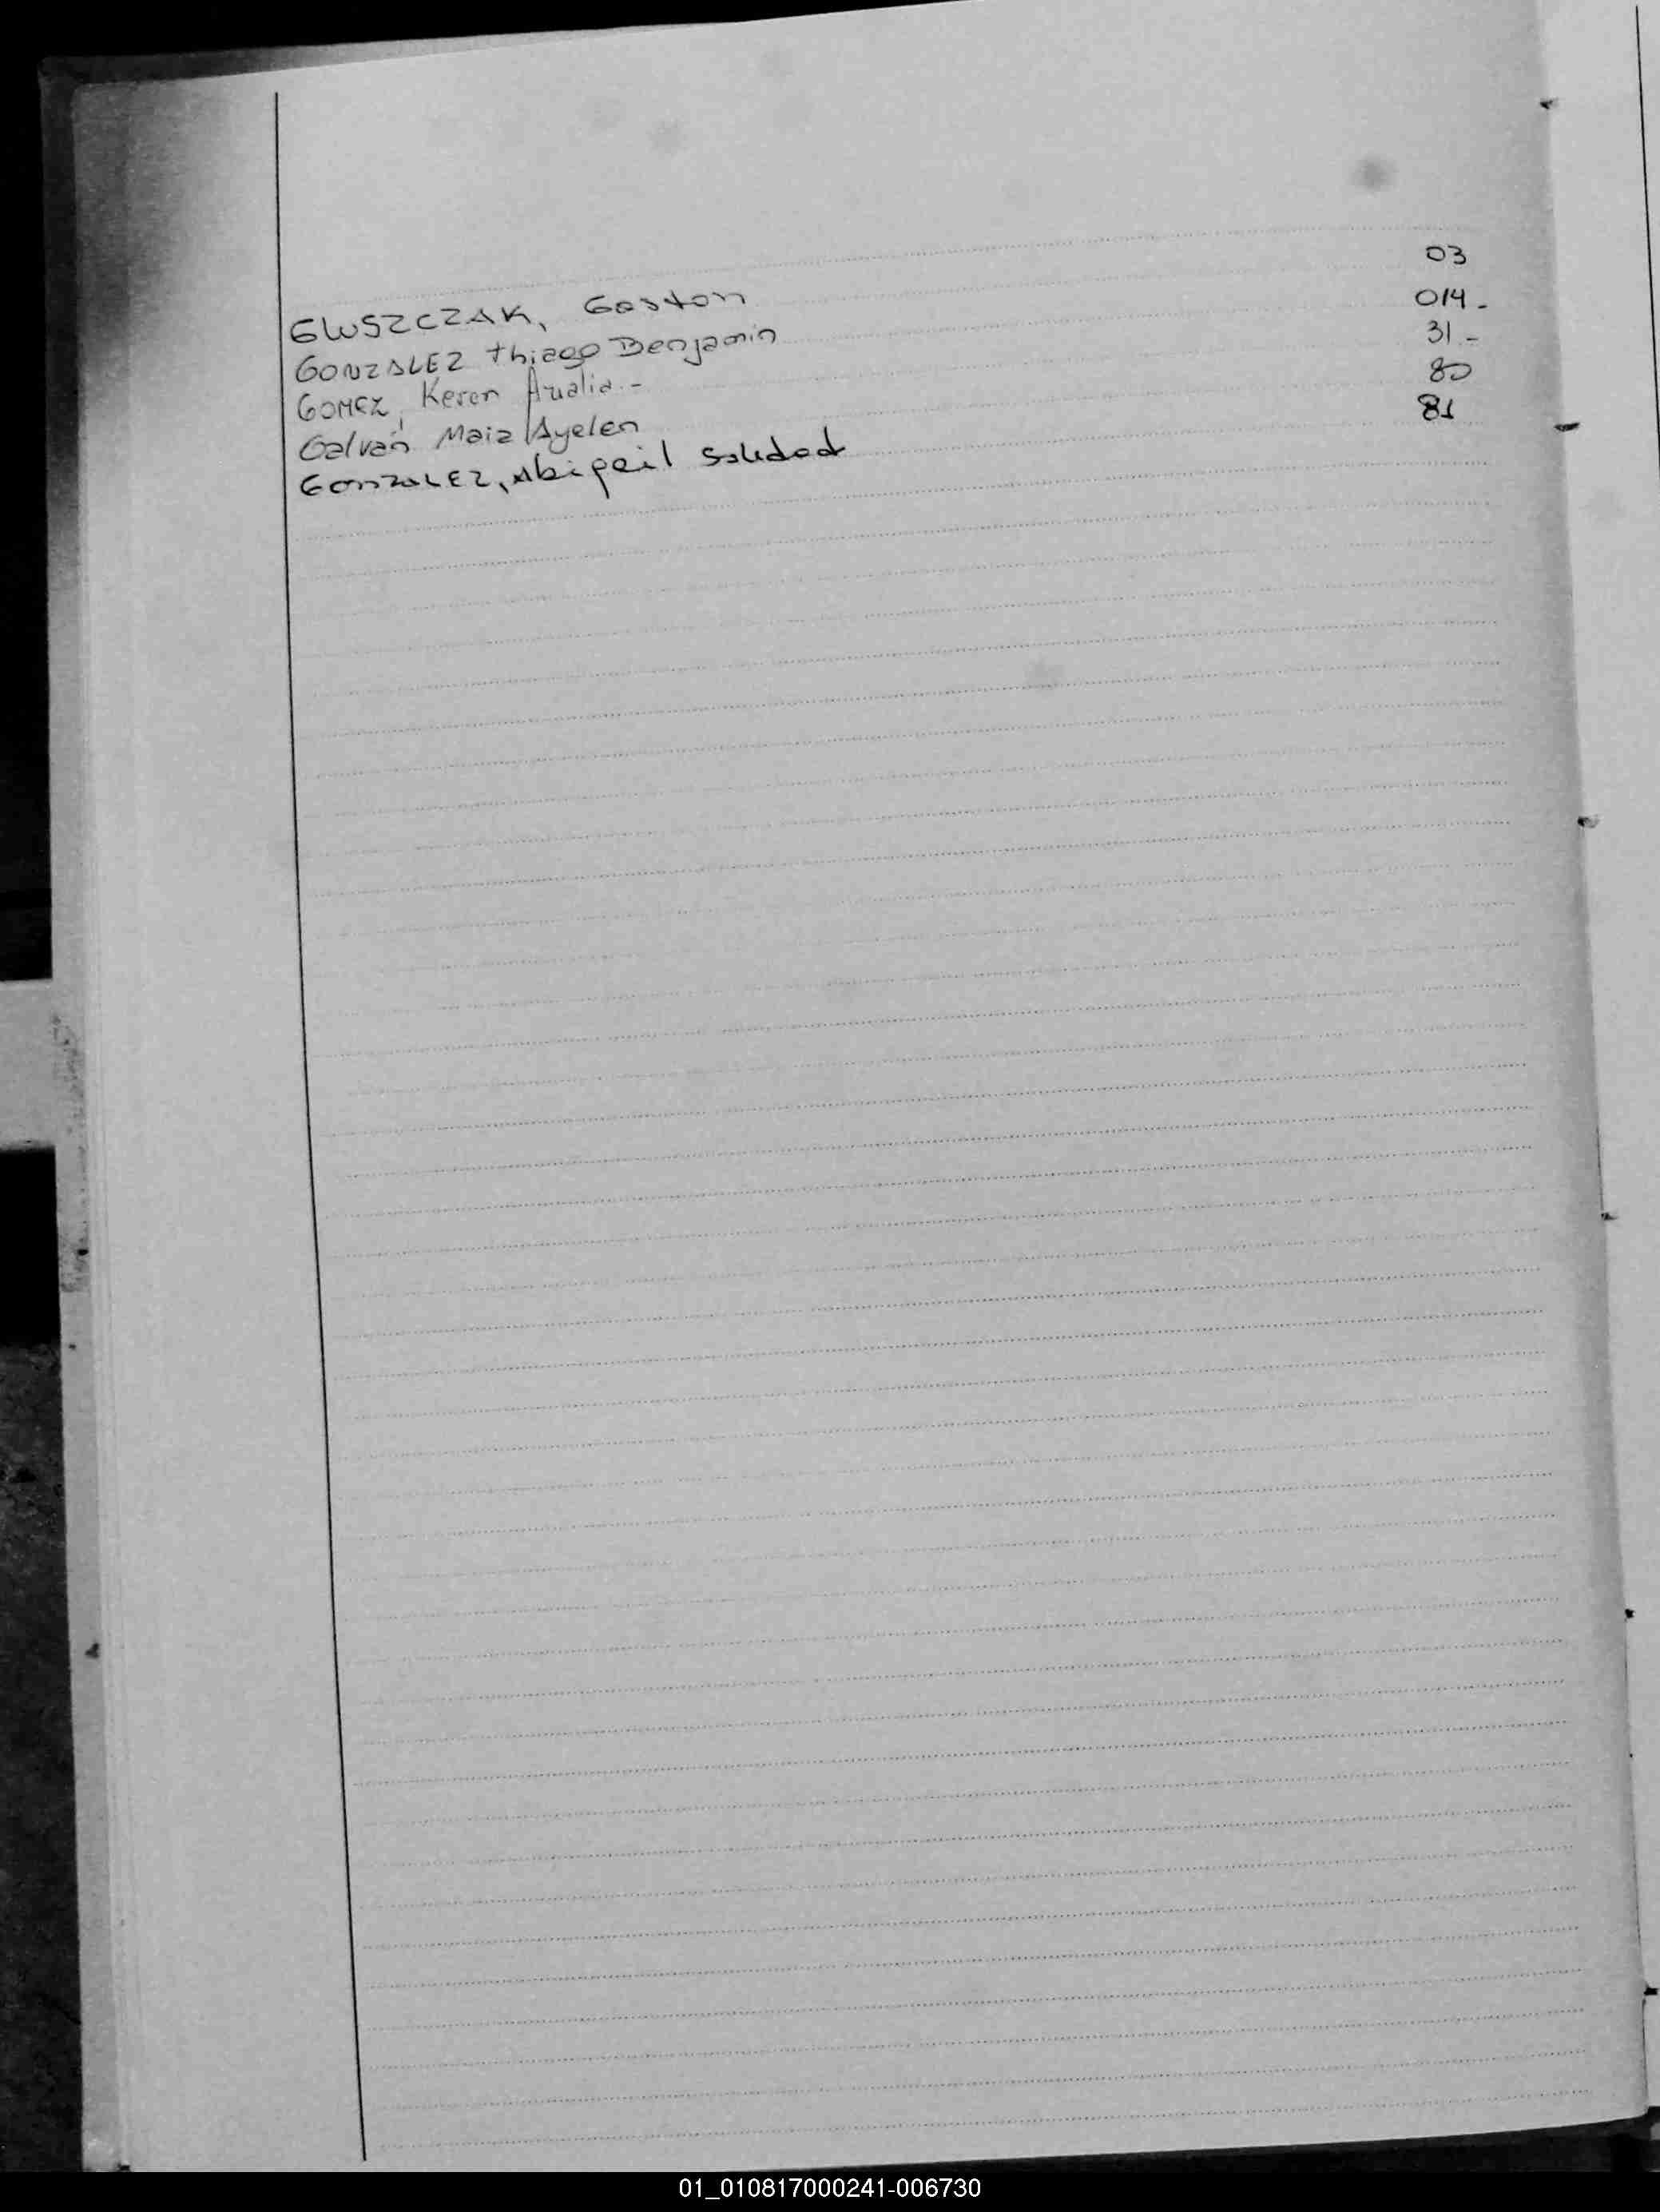 GLUSZCZAK, Gaston 03
GONZALEZ Thiago Benjamin 014.-
GOMEZ, Keren Analia.- 31.-
Galván Maia Ayelen 80
GONZALEZ, Abigail Soledad 81
01_010817000241-006730